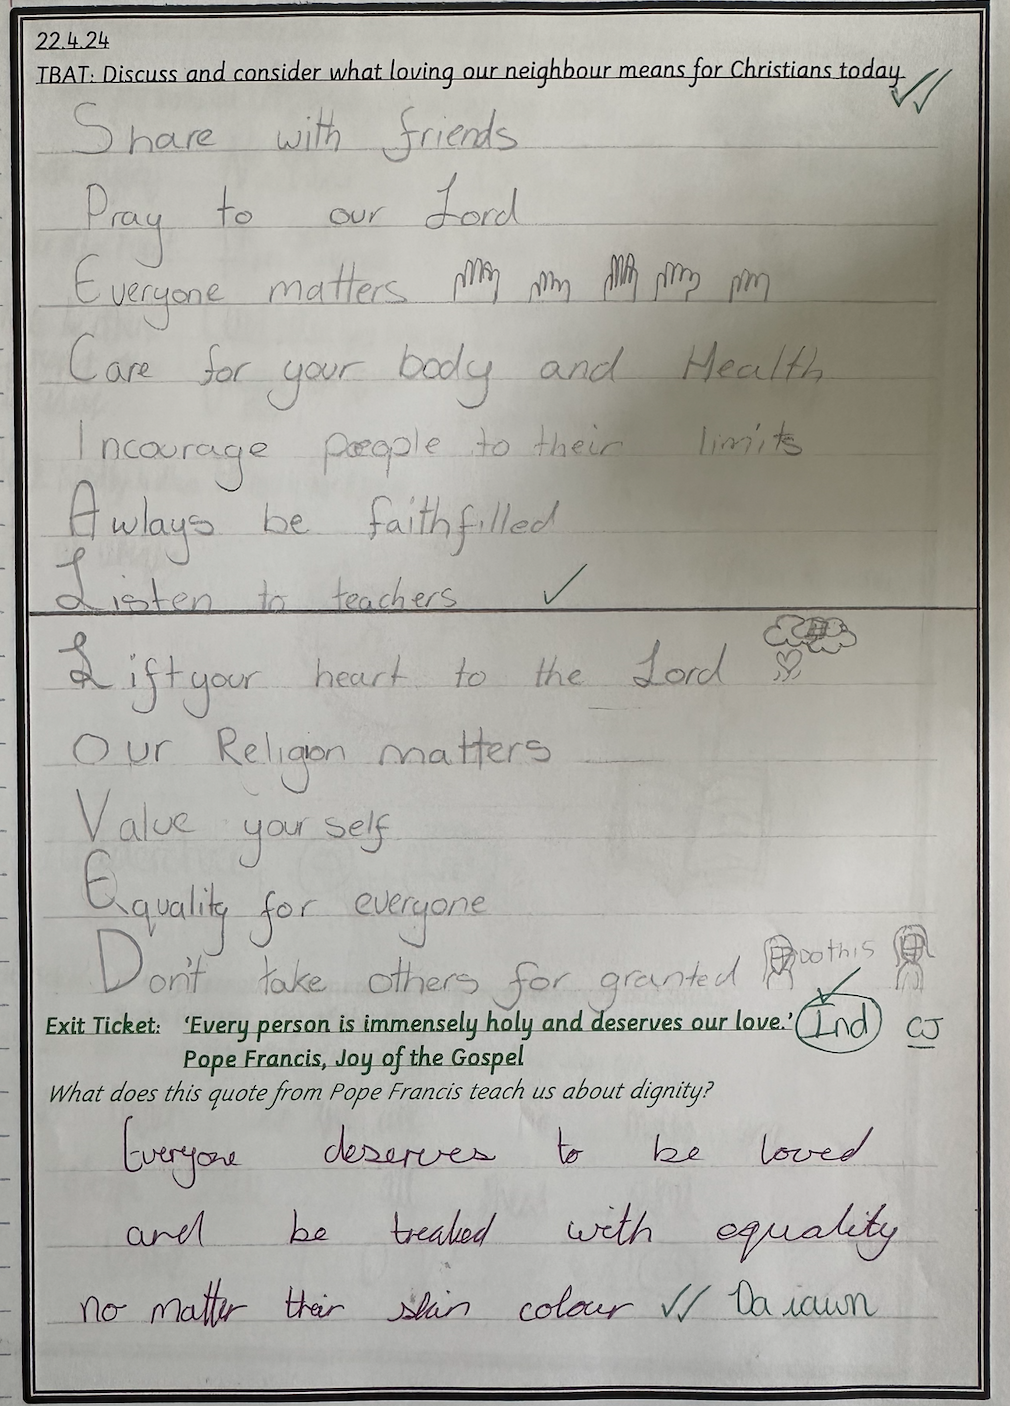 22.4.24
TBAT: Discuss and consider what loving our neighbour means for Christians today.
Share with friends
Pray to our Lord
Everyone matters
Care for your body and Health
Incourage people to their limits
Awlays be faithfilled
Listen to teachers
Lift your heart to the Lord
Our Religion matters
Value your self
Equality for everyone
Don't take others for granted Do this
Exit Ticket: 'Every person is immensely holy and deserves our love.' Ind CJ
Pope Francis, Joy of the Gospel
What does this quote from Pope Francis teach us about dignity?
Everyone deserves to be loved
and be treated with equality
no matter their skin colour Da iawn